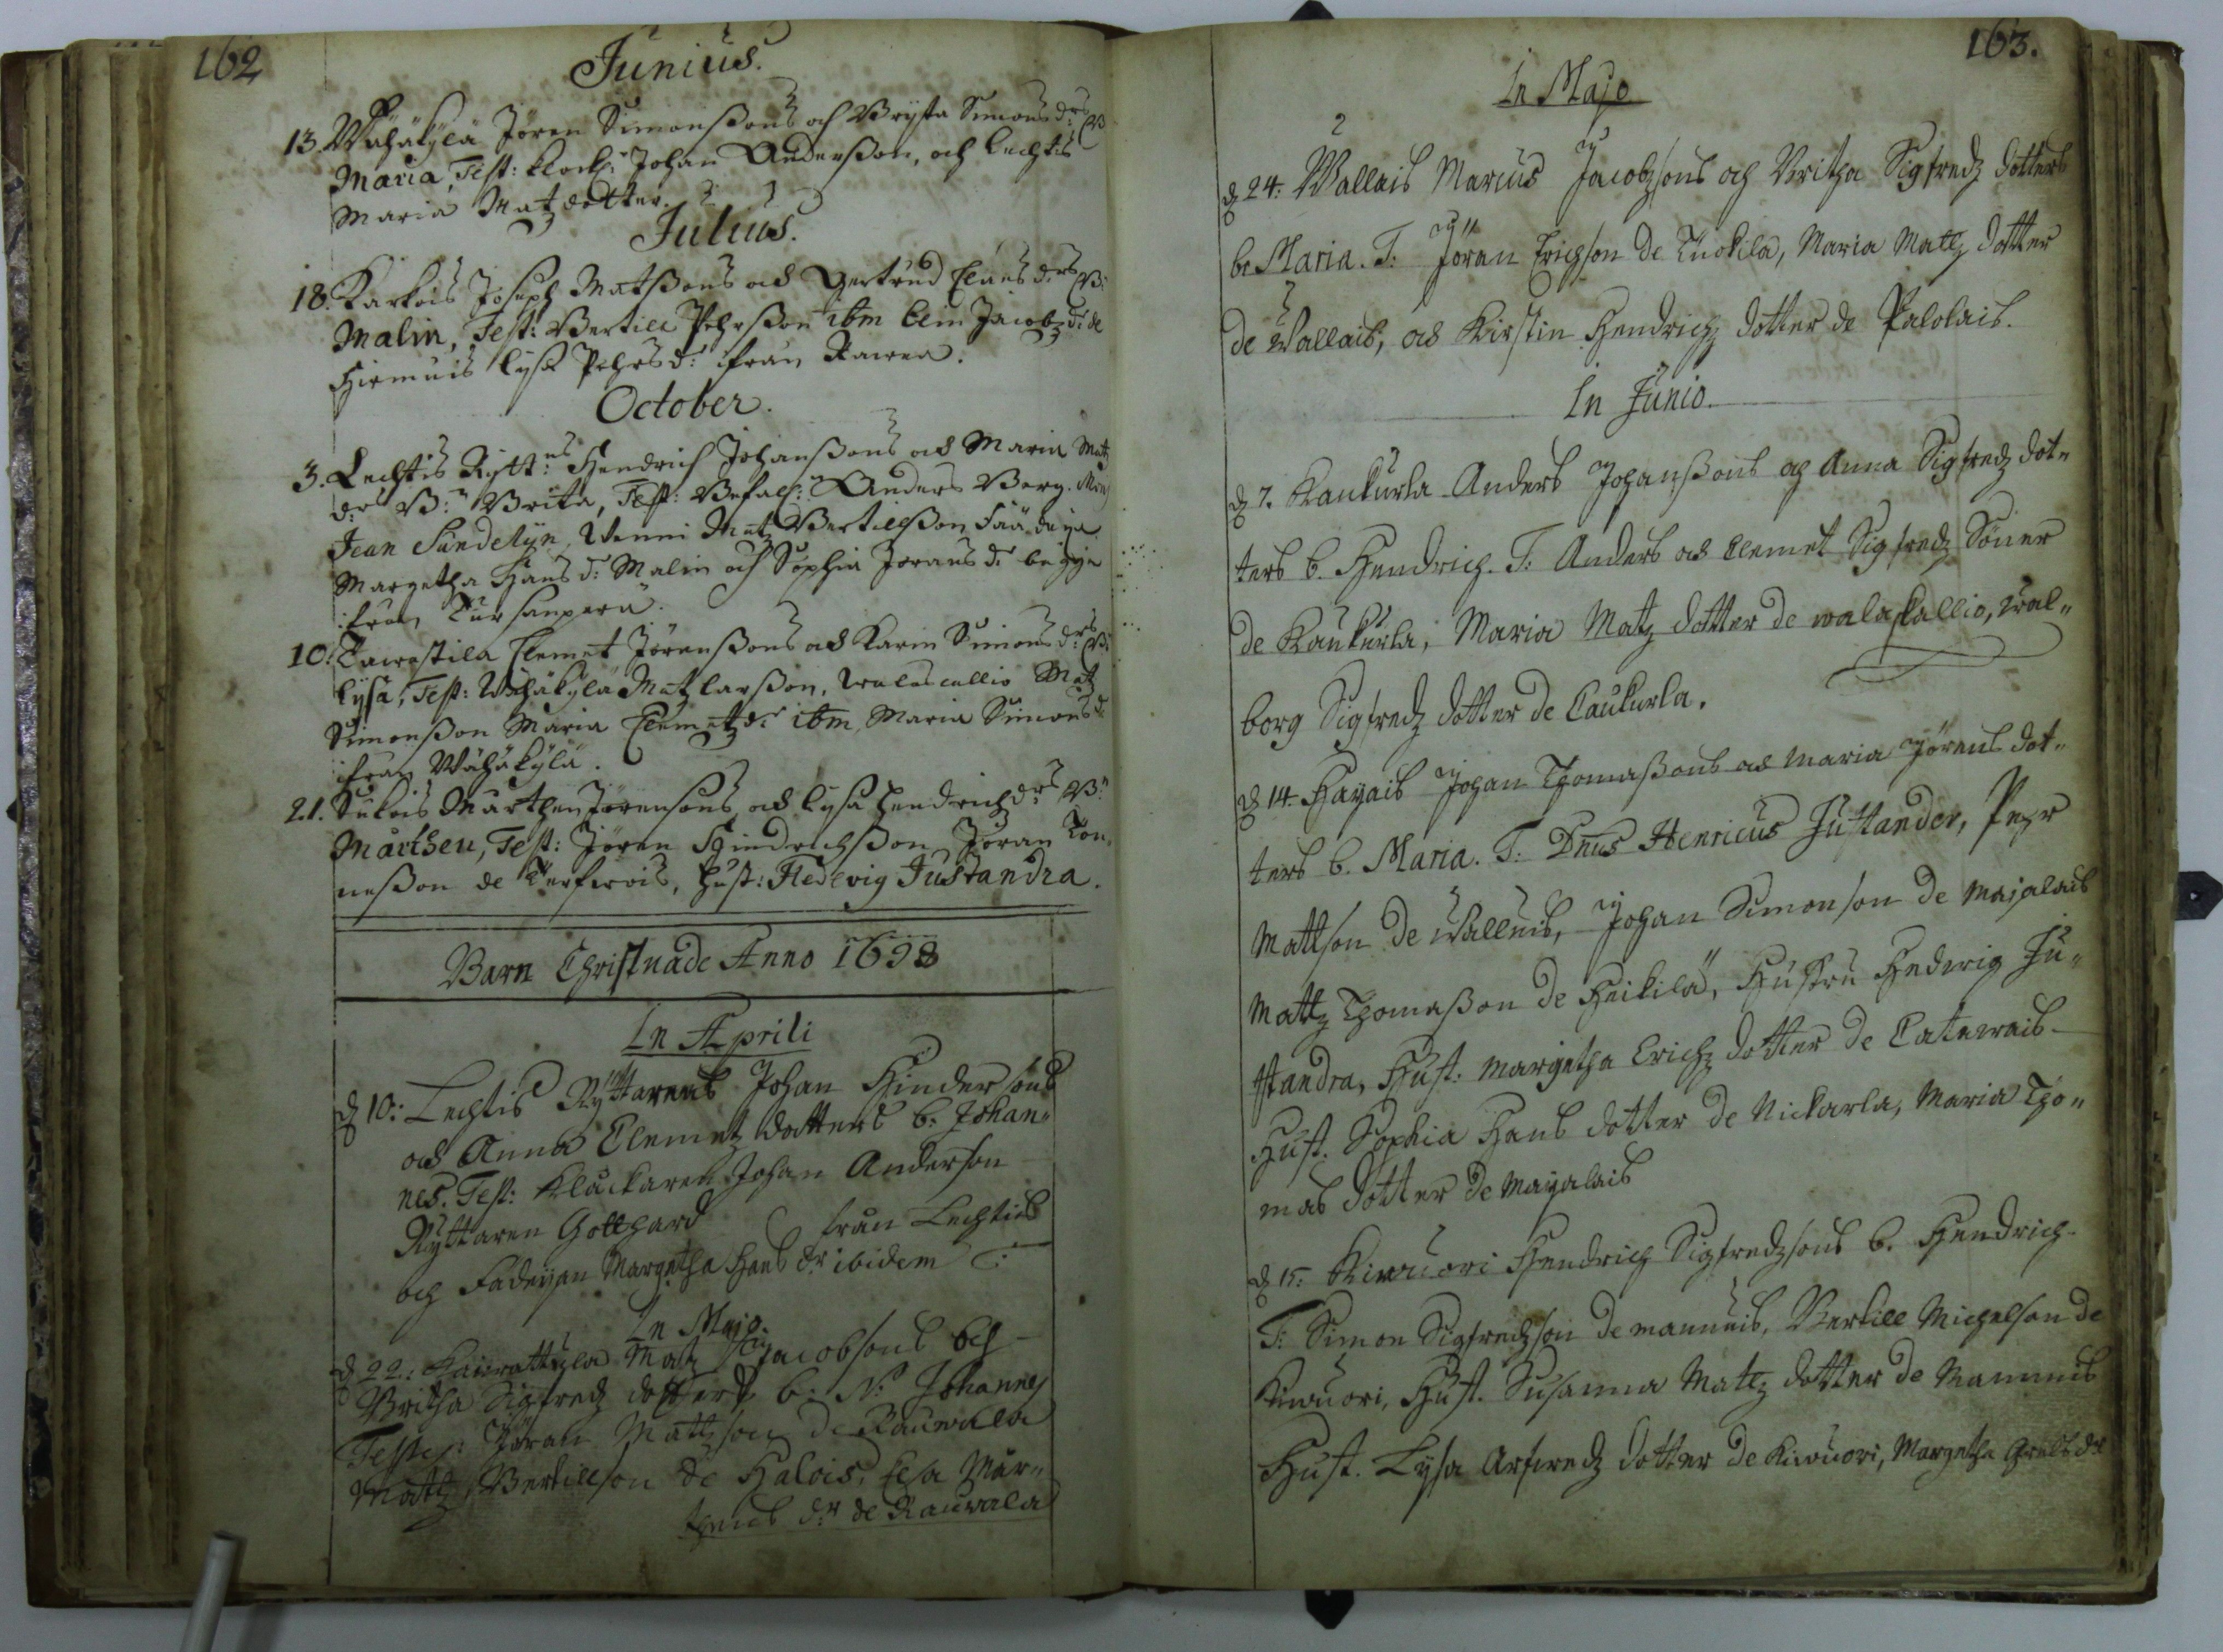 162
Junius.
13. Wähäkylä Jören Simonßons och Brijta Simons d:rs B:
Maria, Test: klock: Johan Anderßon, och Lechtis
Maria Matz dotter.
Julius.
18. Karkois Joseph Matßons och Gertrud Claes d:rs B:
Malin, Test: Bertill Pehrßon ibm Elin Jacobz d:r de
Hirmuis Lysa Pehrs d:r ifrån
October.
3. Lechtis Rytt:ns Hendrich Johanßons och Maria Matz
d:r B:n Brita, Test: Befal: Anders Berg. Mons
Jean Sundelijn, Wenni Matz Bertillßon
Margetha Hans d:r Malin och Sophia Jörans d:r begge
ifrån Tursanperä.
10. Tawastila Clemet Jörenßons och Karin Simons d:rs B:
Lysa, Test: Wähäkylä Matz Larßon, Walascallio Matz
Simonßon Maria Clemetz d:r ibm, Maria Simons d:
ifrån Wähäkylä.
21. Sulois Mårthen Jörensons och Lysa Hendrichz d:rs B:n
Mårthen, Test: Jören Hindrichßon Jöran Ton-
neßon de Hust: Hedevig Justandra.
Barn Christnade Anno 1698
In Aprili
d 10: Lechtis Ryttarens Johan Hindersons
och Anna Clemetz dotters b: Johan-
nes. Test: Kluckaren Johan Anderson
Ryttaren Gotthard från Lechtis
och Fadeijan Margetha Hans dr ibidem
In Majo.
d 22: Kaurattyla Matz Jacobsons och
Britha Sigfredz dotters b: N: Johannes
Testes: Jöran Mattzson de Rauwala
Mattz Bertillson de Halois, Elsa Mår-
thens d:r de Rauwala
163.
In Majo
d 24. Wallais Marcus Jacobzsons och Britha Sigfredz dotters
b. Maria. T: Jöran Erichson de Tuokila, Maria Mattz dotter
de Wallais, och Kirstin Hendrichz dotter de Palolais.
In Junio.
d 7. Kaukurla Anders Johanßons och Anna Sigfredz dot-
ters b. Hendrich. T: Anders och Clemet Sigfredz Söner
de Kaukurla, Maria Matz dotter de walaskallio, wal-
borg Sigfredz dotter de Caukurla.
d 14. Hayais Johan Thomaßons och Maria Jörens dot-
ters b. Maria. T: Dnus Henricus Justander, Pehr
Mattson de Walleis, Johan Simonson de Majalais
Mattz Thomaßon de Heikilä, Hustru Hedevig Ju-
standra, Hust: Margetha Erichz dotter de Caterois
Hust. Sophia Hans dotter de Nickarla, Maria Tho-
mas dotter de Mayalais
d 15. Kiwuori Hendrich Sigfredzsons b. Hendrich.
T: Simon Sigfredzson de mannuis, Bertill Michelson de
Kiwuori, Hust. Susanna Mattz dotter de Mannuis
Hust. Lysa Arfwedz dotter de Kiwuori, Margetha Grels d:r